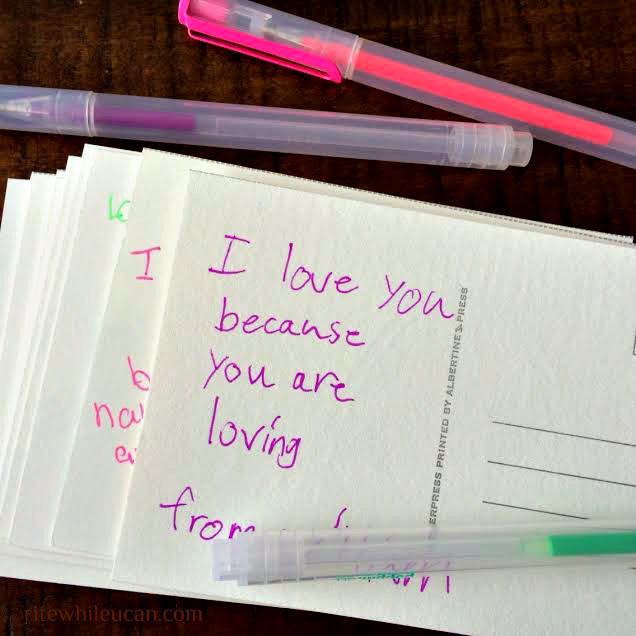 I love you
because
you are
loving
from
ERPRESS PRINTED BY ALBERTINE PRESS
I
ritewhileucan.com